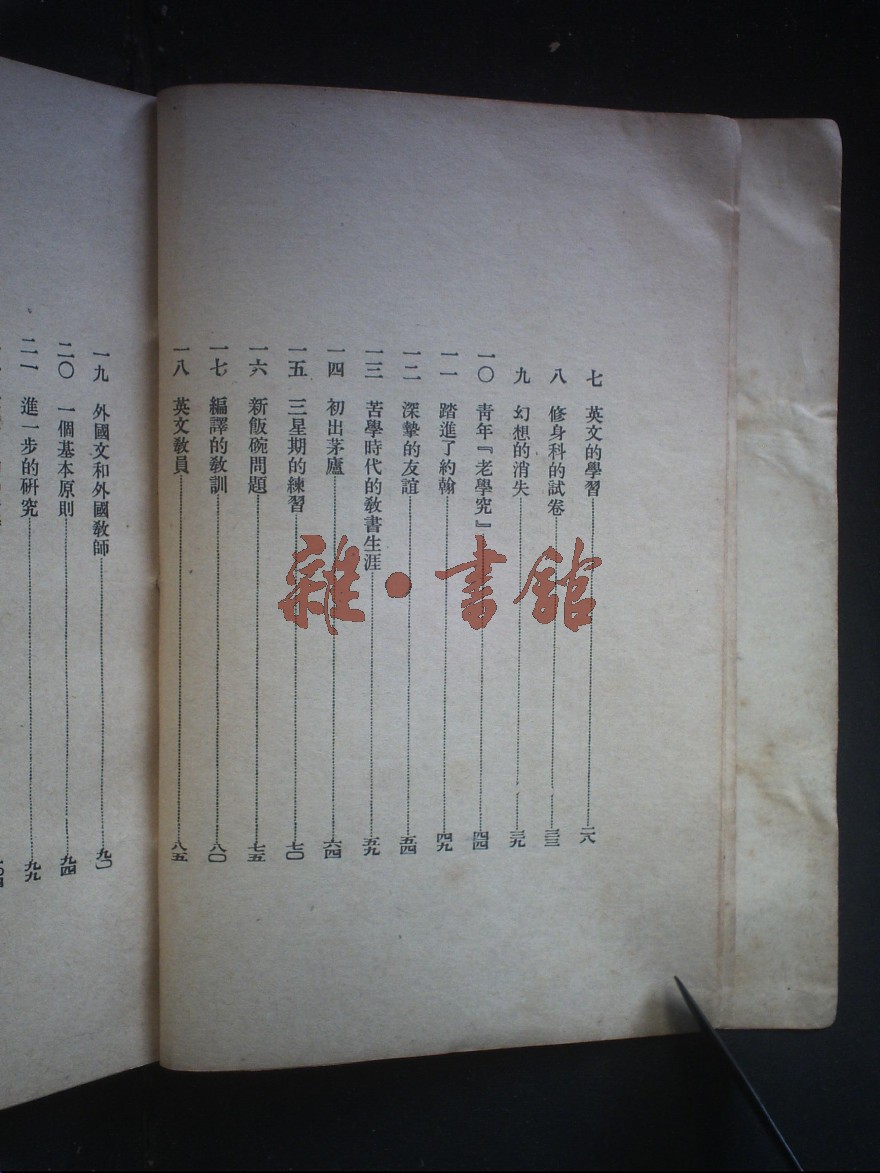 七 英文的學習 二八
八 修身科的試卷 三三
九 幻想的消失 三九
一〇 青年『老學究』 四四
一一 踏進了約翰 四九
一二 深摯的友誼 五四
一三 苦學時代的教書生涯 五九
一四 初出茅廬 六四
一五 三星期的練習 七〇
一六 新飯碗問題 七五
一七 編譯的教訓 八〇
一八 英文教員 八五
一九 外國文和外國教師 九〇
二〇 一個基本原則 九四
二一 進一步的研究 九九
雜·書館